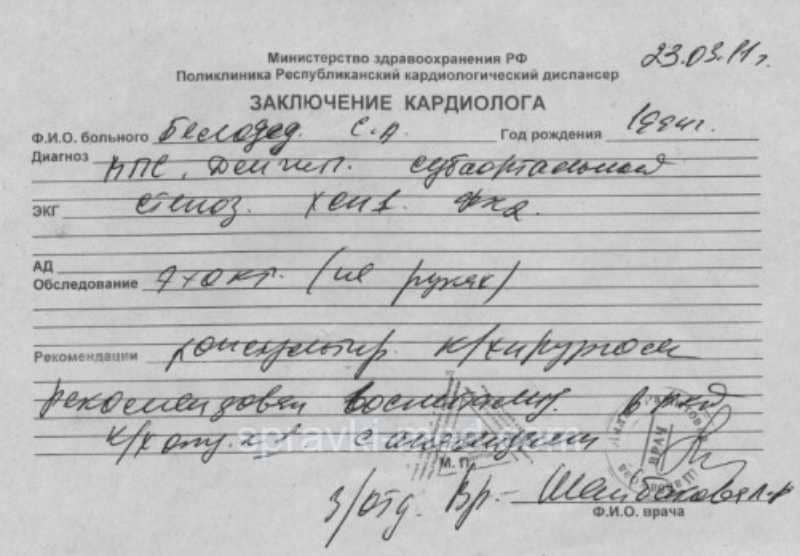 Министерство здравоохранения РФ
23.03.11г.
Поликлиника Республиканский кардиологический диспансер
ЗАКЛЮЧЕНИЕ КАРДИОЛОГА
Ф.И.О. больного Белодед. С.А. Год рождения 1994г.
Диагноз ВПС. субаортальный
ЭКГ стеноз. ХСН1. ФК2.
АД
Обследование эхокг. (на руках)
Рекомендации консультир. к/хирургом
рекомендован в РКД
к/х отд.
М. П.
ВРАЧ
з/отд. Вр.-
Ф.И.О. врача